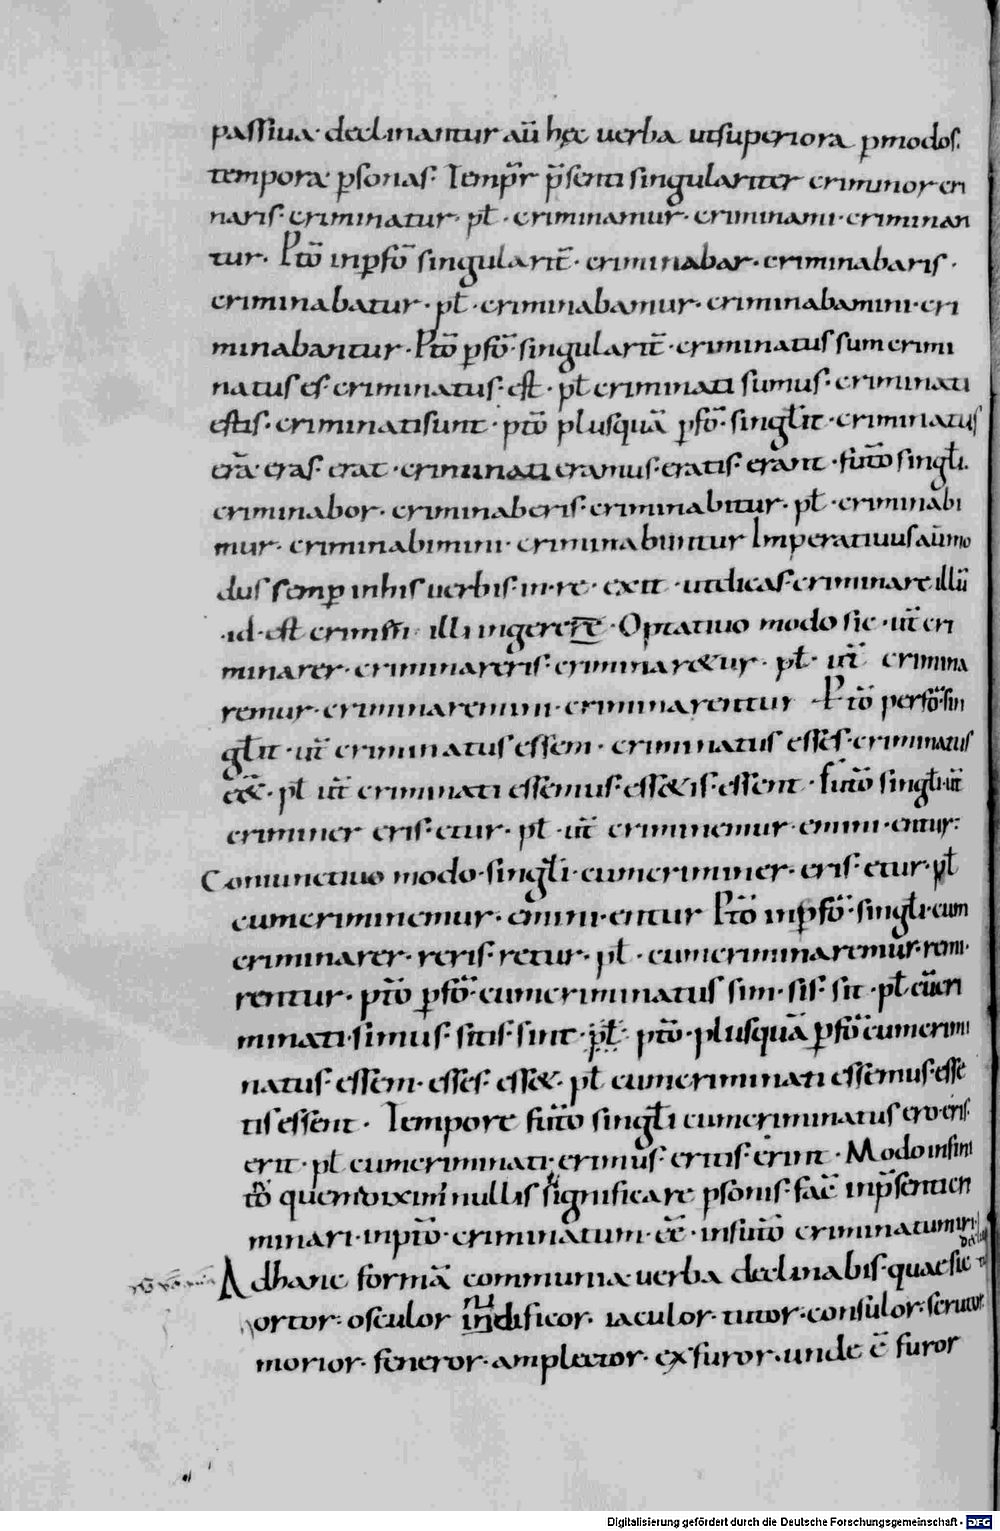 passiua· declinantur aũ hęc uerba utsuperiora ꝑmodos.
tempora ꝑsonas· Temp̃r p̃senti singulariter criminor cri
naris· criminatur· pł· criminamur· criminami· criminan
tur· Ptõ inꝑfõ singularit̃· criminabar· criminabaris·
criminabatur· pł· criminabamur· criminabamini· cri
minabantur· Ptõ ꝑfõ· singularit̃· criminatus sum crimi
natus es· criminatus· est· pł criminati sumus· criminati
estis· criminatisunt· ptõ plusquã ꝑfõ· singłit· criminatus
erã· eras· erat· criminati eramus· eratis· erant· futõ singłi.
criminabor· criminaberis· criminabitur· pł· criminabi
mur· criminabimini· criminabuntur Imperatiuus aũ mo
dus semꝑ inhis uerbis· in· re· exit· utdicas· criminare illũ
·id· est illi ingerere· Optatiuo modo sic· ut̃ cri
minarer· criminareris· criminar&ur· pł· ut̃ crimina
remur· criminaremini· criminarentur Ptõ perfõ· sin
głit· ut̃ criminatus essem· criminatus esses· criminatus
ess&· pł ut̃ criminati essemus· ess&is· essent· futõ singłi· ut̃
criminer eris· etur· pł· ut̃ criminemur· emini· entur:
Coniunctiuo modo· singłi· cumcriminer· eris· etur· pł
cumcriminemur· emini· entur Ptõ inꝑfõ· singłi· cum
criminarer· reris· retur· pł· cumcriminaremur· remi·
rentur· ptõ ꝑfõ· cumcriminatus sim· sis· sit· pł cũcri
minati· simus· sitis· sint· pł· ptõ· plusquã ꝑfõ cumcrimi
natus· essem· esses· ess&· pł cumcriminati essemus· esse
tis essent· Tempore futõ singłi cumcriminatus ero· eris·
erit· pł cumcriminati· erimus· eritis· erint· Modo infini
tõ quem diximus nullis significare ꝑsonis· inp̃senti cri
minari· inptõ· criminatum· eẽ· infutõ criminatum iri·
Adhanc formã communia uerba declinabis· quae sic
ortor· osculor iaculor· tutor· consulor· scrutor
morior· feneror· amplector· ex furor· unde ẽ furor
Digitalisierung gefördert durch die Deutsche Forschungsgemeinschaft - DFG